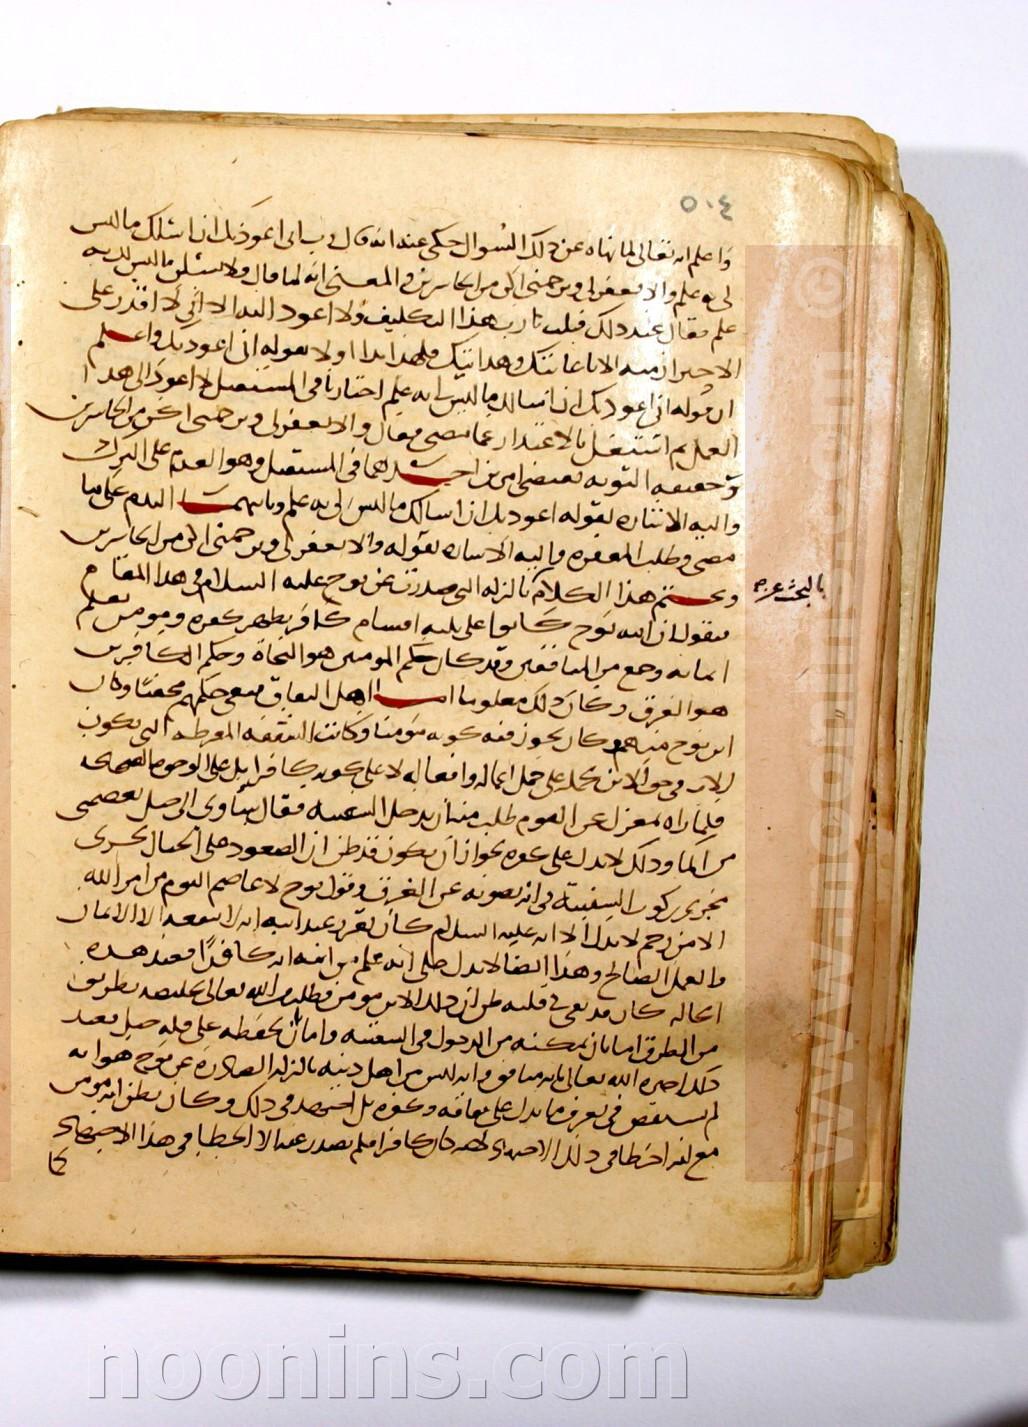 ٥٠٤
واعلم انه تعالى لما نهاه عن ذلك السوال حكى عنه انه قال رب انى اعوذ بك ان اسئلك ما ليس
لى به علم والا تغفر لى وترحمنى اكن من الخاسرين والمعنى انه لما قال ولا تسئلن ما ليس لك به
علم فقال عند ذلك قبلت يا رب هذا التكليف ولا اعود اليه الا انى لا اقدر على
الاحتراز منه الا باعانتك وهدايتك فلهذا بدا اولا بقوله انى اعوذ بك واعلم
ان قوله انى اعوذ بك ان اسالك ما ليس لى به علم اخبار عما فى المستقبل لا اعود الى هذا
العمل ثم اشتغل بالاعتذار عما مضى فقال والا تغفر لى وترحمنى اكن من الخاسرين
وحقيقه التوبه تقتضى امرين احدهما فى المستقبل وهو العزم على الترك
واليه الاشاره بقوله اعوذ بك ان اسالك ما ليس لى به علم وثانيهما الندم على ما
مضى وطلب المغفره واليه الاشاره بقوله والا تغفر لى وترحمنى اكن من الخاسرين
ونختم هذا الكلام بالزله التى صدرت عن نوح عليه السلام فى هذا المقام
بالبحث عن
فنقول ان امه نوح كانوا على ثلثه اقسام كافر يظهر كفره ومومن يعلم
ايمانه وجمع من المنافقين وقد كان حكم المومنين هو النجاة وحكم الكافرين
هو الغرق وكان ذلك معلوما اما اهل النفاق فبقى حكمهم مخفيا وكان
ابن نوح منهم وكان يجوز فيه كونه مومنا وكانت الشفقه المفرطه التى يكون
للاب فى حق الابن تحمله على حمل اعماله وافعاله لا على كونه كافرا بل على الوجوه الصحيحه
فلما راه بمعزل عن القوم طلب منه ان يدخل السفينه فقال سآوى الى جبل يعصمنى
من الما وذلك لا يدل على كفره لجواز ان يكون قد ظن ان الصعود على الجبال يجرى
مجرى ركوب السفينة فى انه يصونه عن الغرق وقول نوح لا عاصم اليوم من امر الله
الا من رحم لا يدل الا انه عليه السلام كان يقرر عند ابنه انه لا ينفعه الا الايمان
والعمل الصالح وهذا ايضا لا يدل على انه علم من ابنه انه كان كافرا فعند هذه
الحاله كان قد بقى فى قلبه ظن ان ذلك الابن مومن فطلب من الله تعالى تخليصه بطريق
من الطرق اما بان يمكنه من الدخول فى السفينه واما ان يحفظه على قله جبل فعند
ذلك اخبره الله تعالى بانه منافق وانه ليس من اهل دينه فالزله الصادره عن نوح هو انه
لم يستقص فى تعريف ما يدل على نفاقه وكفره بل اجتهد فى ذلك وكان يظن انه مومن
مع انه اخطا فى ذلك الاجتهاد لانه كان كافرا فلم يصدر عنه الا الخطا فى هذا الاجتهاد
كما
© www.noonins.com
noonins.com